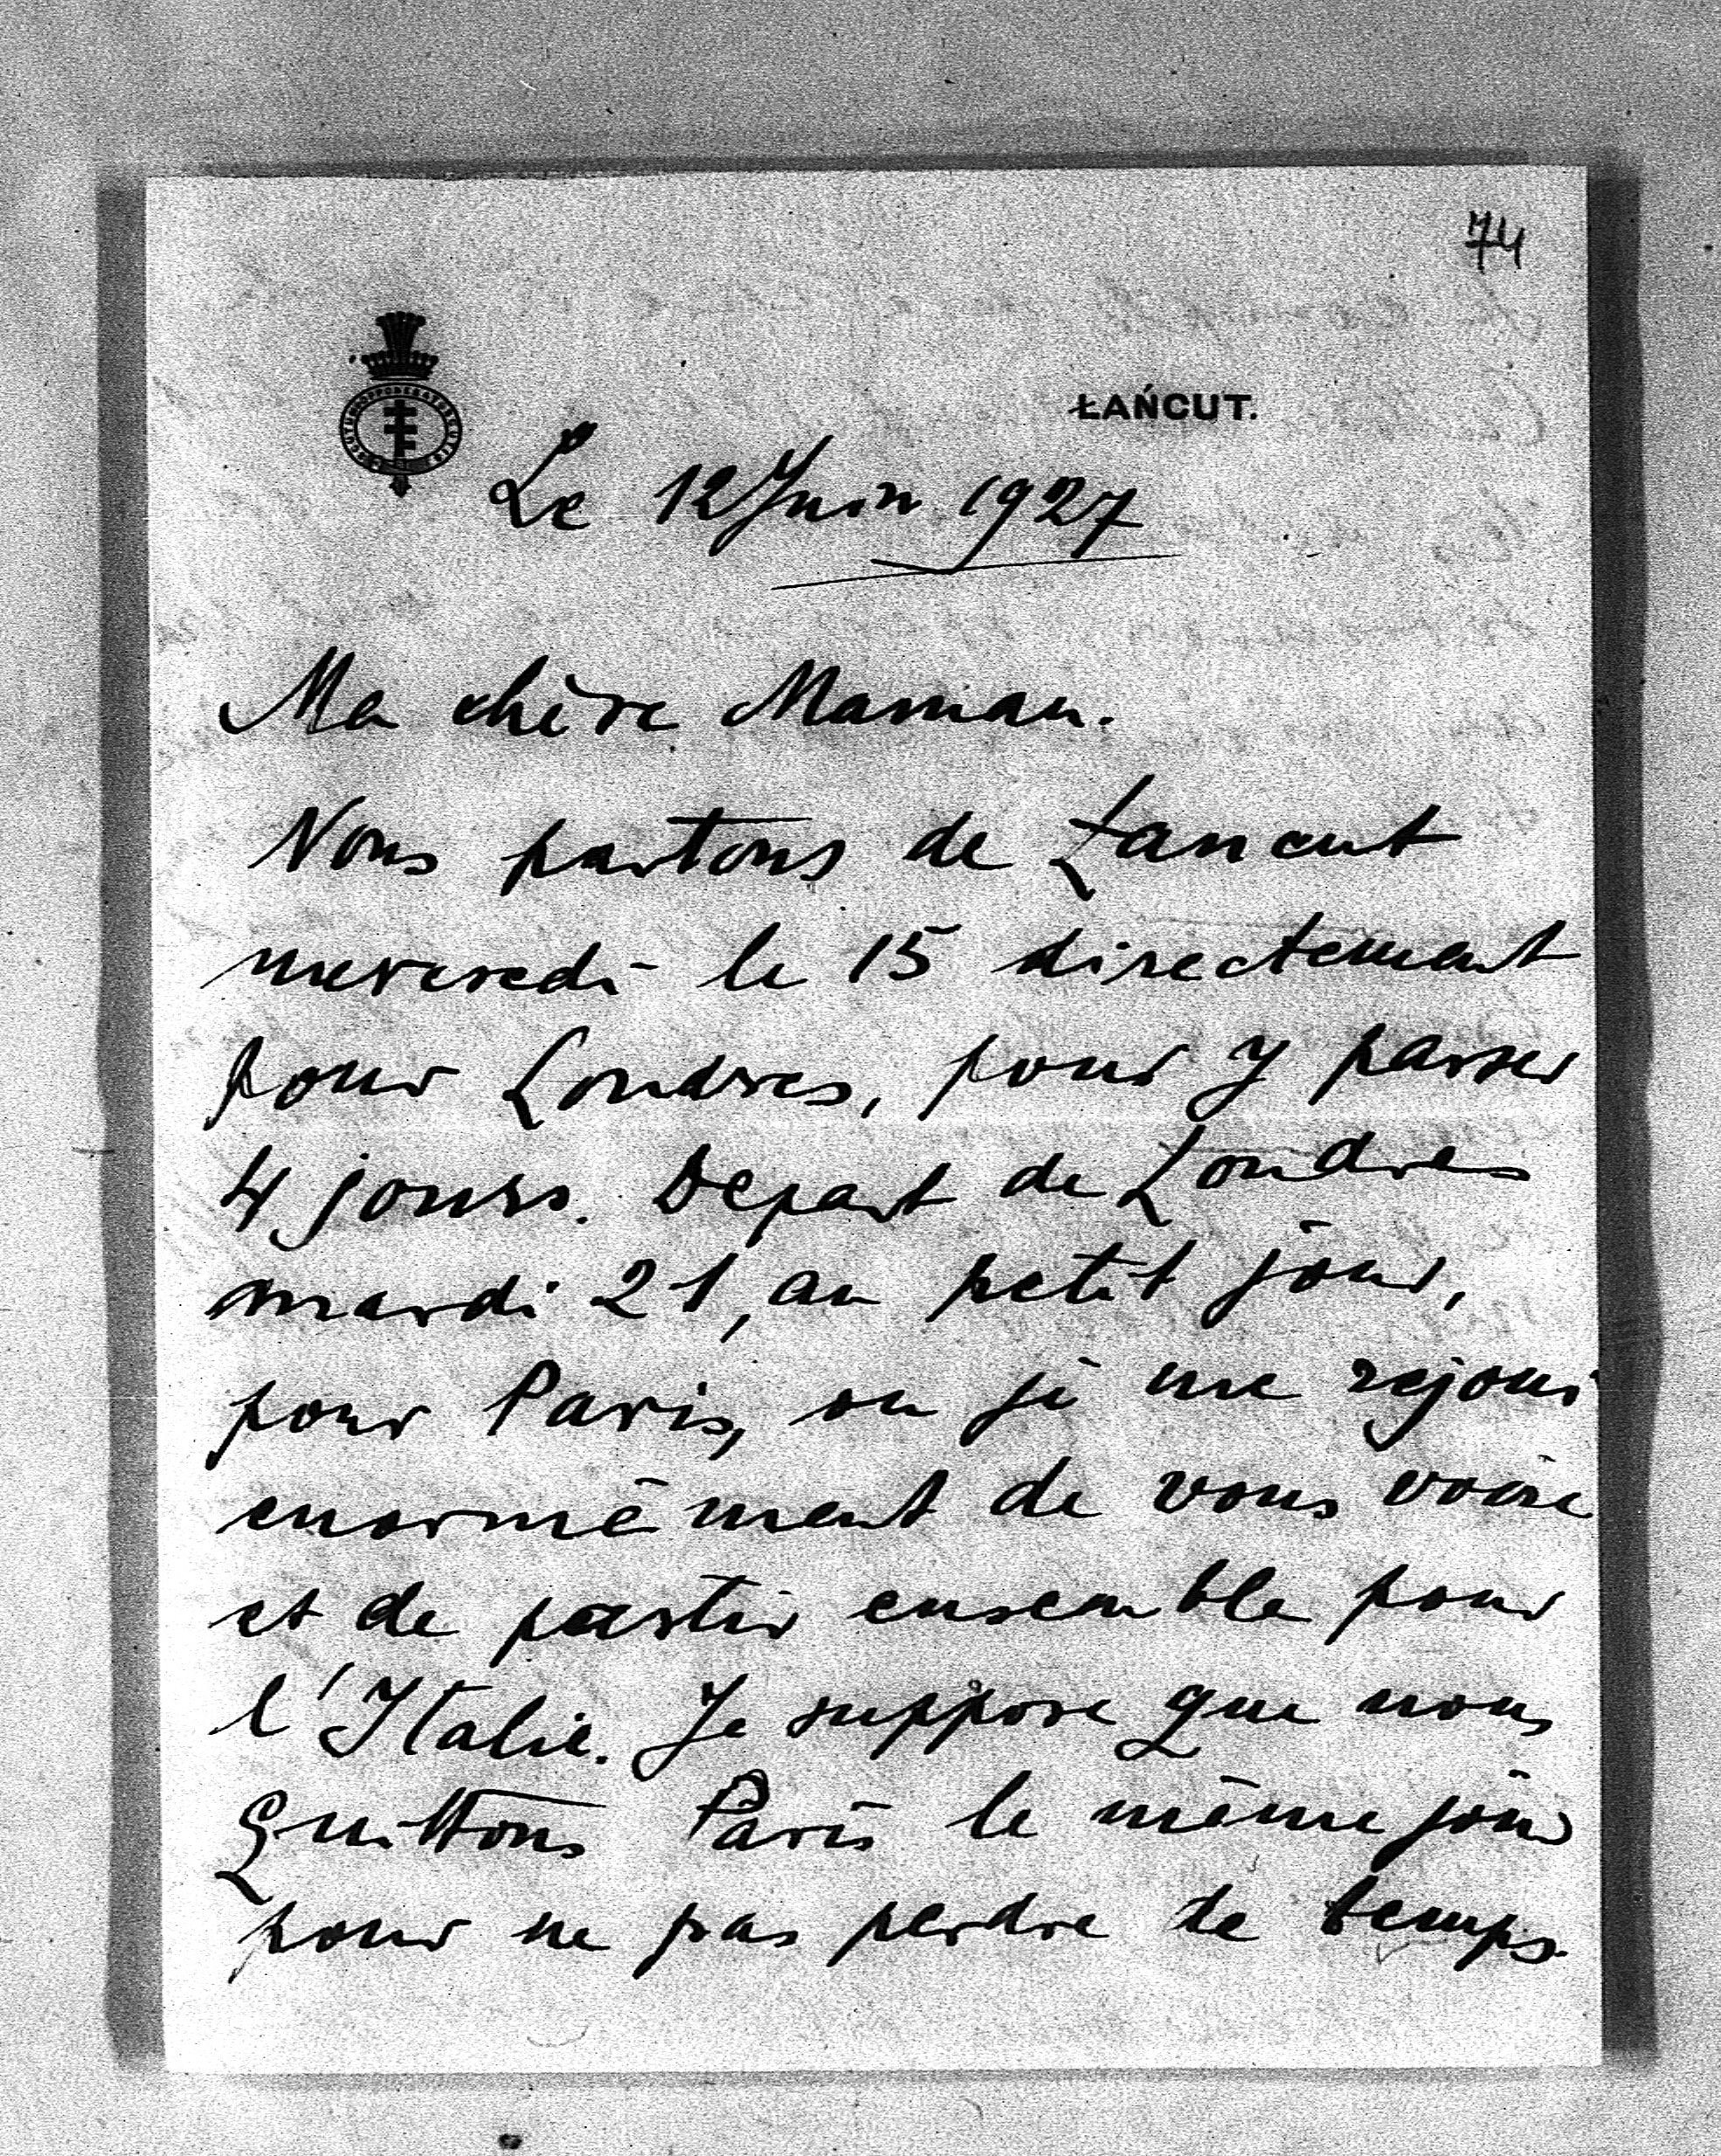 74
ŁAŃCUT.
Le 12 Juin 1927
Ma chère Maman.
Nous partons de Łancut
mercredi le 15 directement
pour Londres, pour y passer
4 jours. Depart de Londres
mardi 21, au petit jour,
pour Paris, ou je me rejoui
enormément de vous voire
et de partir ensemble pour
l'Italie. Je suppose que nous
Quittons Paris le même jour
pour ne pas perdre de temps.